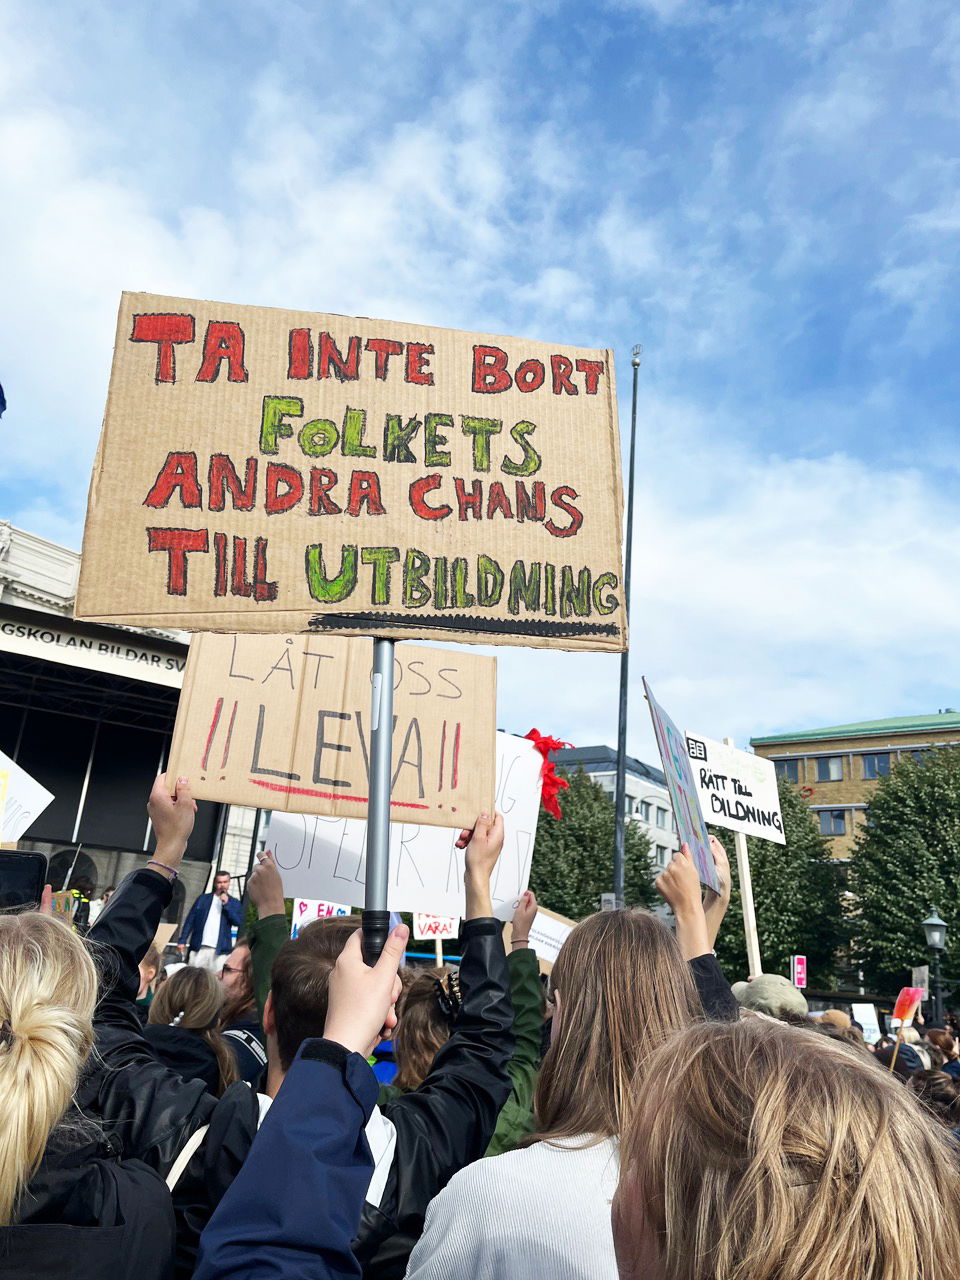 TA INTE BORT
FOLKETS
ANDRA CHANS
TILL UTBILDNING
GSKOLAN BILDAR SV
LÅT OSS
!!LEVA!!
RÄTT TILL
BILDNING
EN
VARA!